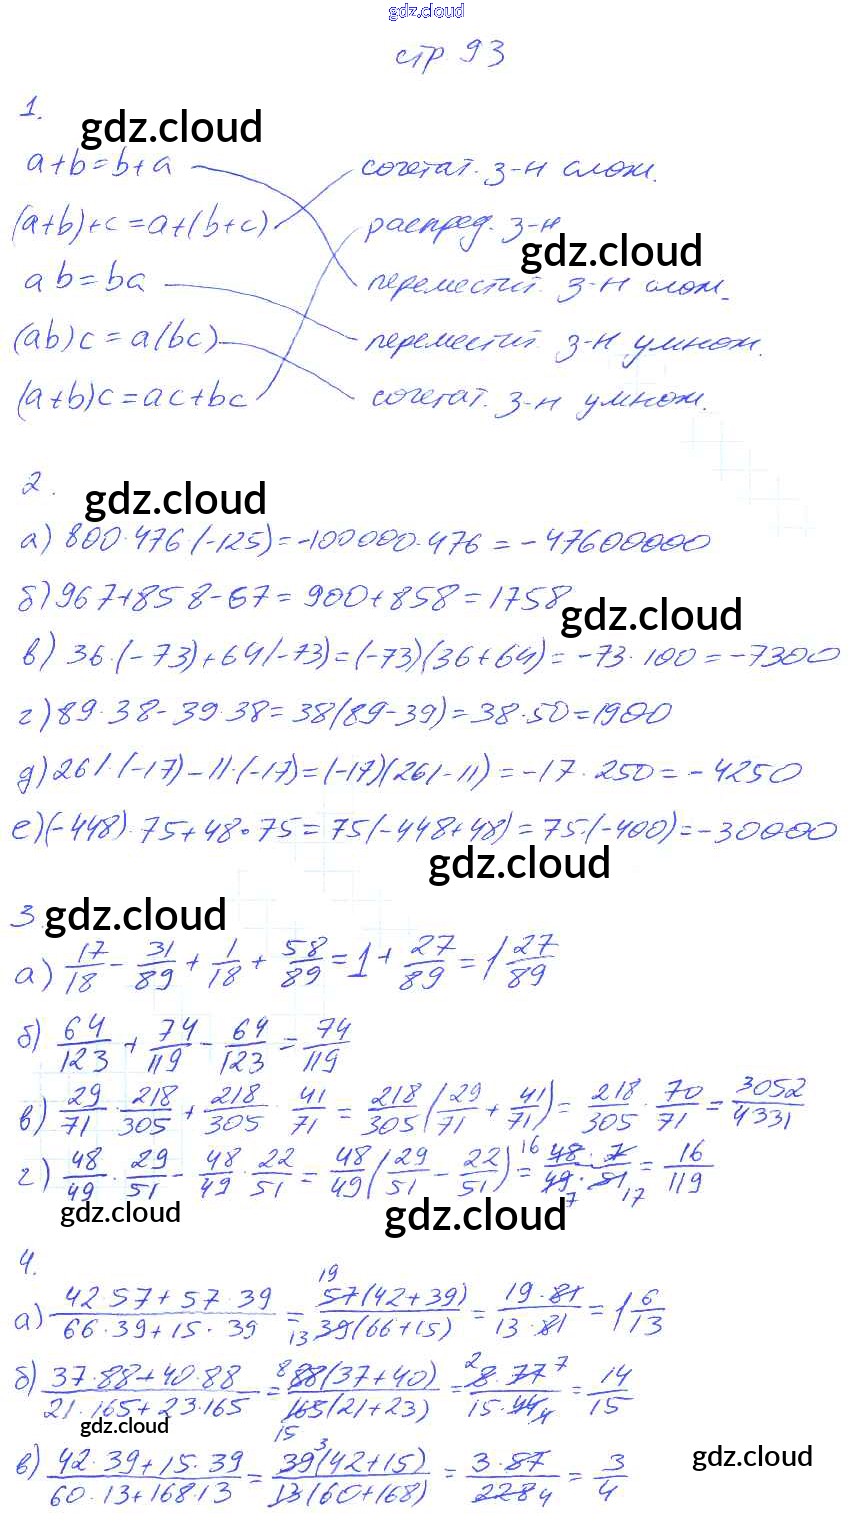 gdz.cloud
стр 93
1.
gdz.cloud
a+b=b+a сочетат. з-н слож.
(a+b)+c=a+(b+c) распред. з-н
gdz.cloud
ab=ba переместит. з-н слож.
(ab)c=a(bc) переместит. з-н умнож.
(a+b)c=ac+bc сочетат. з-н умнож.
2.
gdz.cloud
а) 800·476·(-125)=-100000·476=-47600000
б) 967+858-67=900+858=1758
gdz.cloud
в) 36·(-73)+64(-73)=(-73)(36+64)=-73·100=-7300
г) 89·38-39·38=38(89-39)=38·50=1900
д) 261·(-17)-11·(-17)=(-17)(261-11)=-17·250=-4250
е) (-448)·75+48·75=75(-448+48)=75·(-400)=-30000
gdz.cloud
3 gdz.cloud
а) 17/18 - 31/89 + 1/18 + 58/89 = 1 + 27/89 = 1 27/89
б) 64/123 + 74/119 - 64/123 = 74/119
в) 29/71 · 218/305 + 218/305 · 41/71 = 218/305 (29/71 + 41/71) = 218/305 · 70/71 = 3052/4331
г) 48/49 · 29/51 - 48/49 · 22/51 = 48/49 (29/51 - 22/51) = 16 48·7/49·51 7 17 = 16/119
gdz.cloud gdz.cloud
4.
а) 42·57+57·39/66·39+15·39 = 19 57(42+39)/13 39(66+15) = 19·81/13·81 = 1 6/13
б) 37·88+40·88/21·165+23·165 = 8 88(37+40)/165(21+23) 15 = 2 8·77 7/15·44 4 = 14/15
gdz.cloud
в) 42·39+15·39/60·13+168·13 = 39 3(42+15)/13(60+168) = 3·87/228 4 = 3/4
gdz.cloud